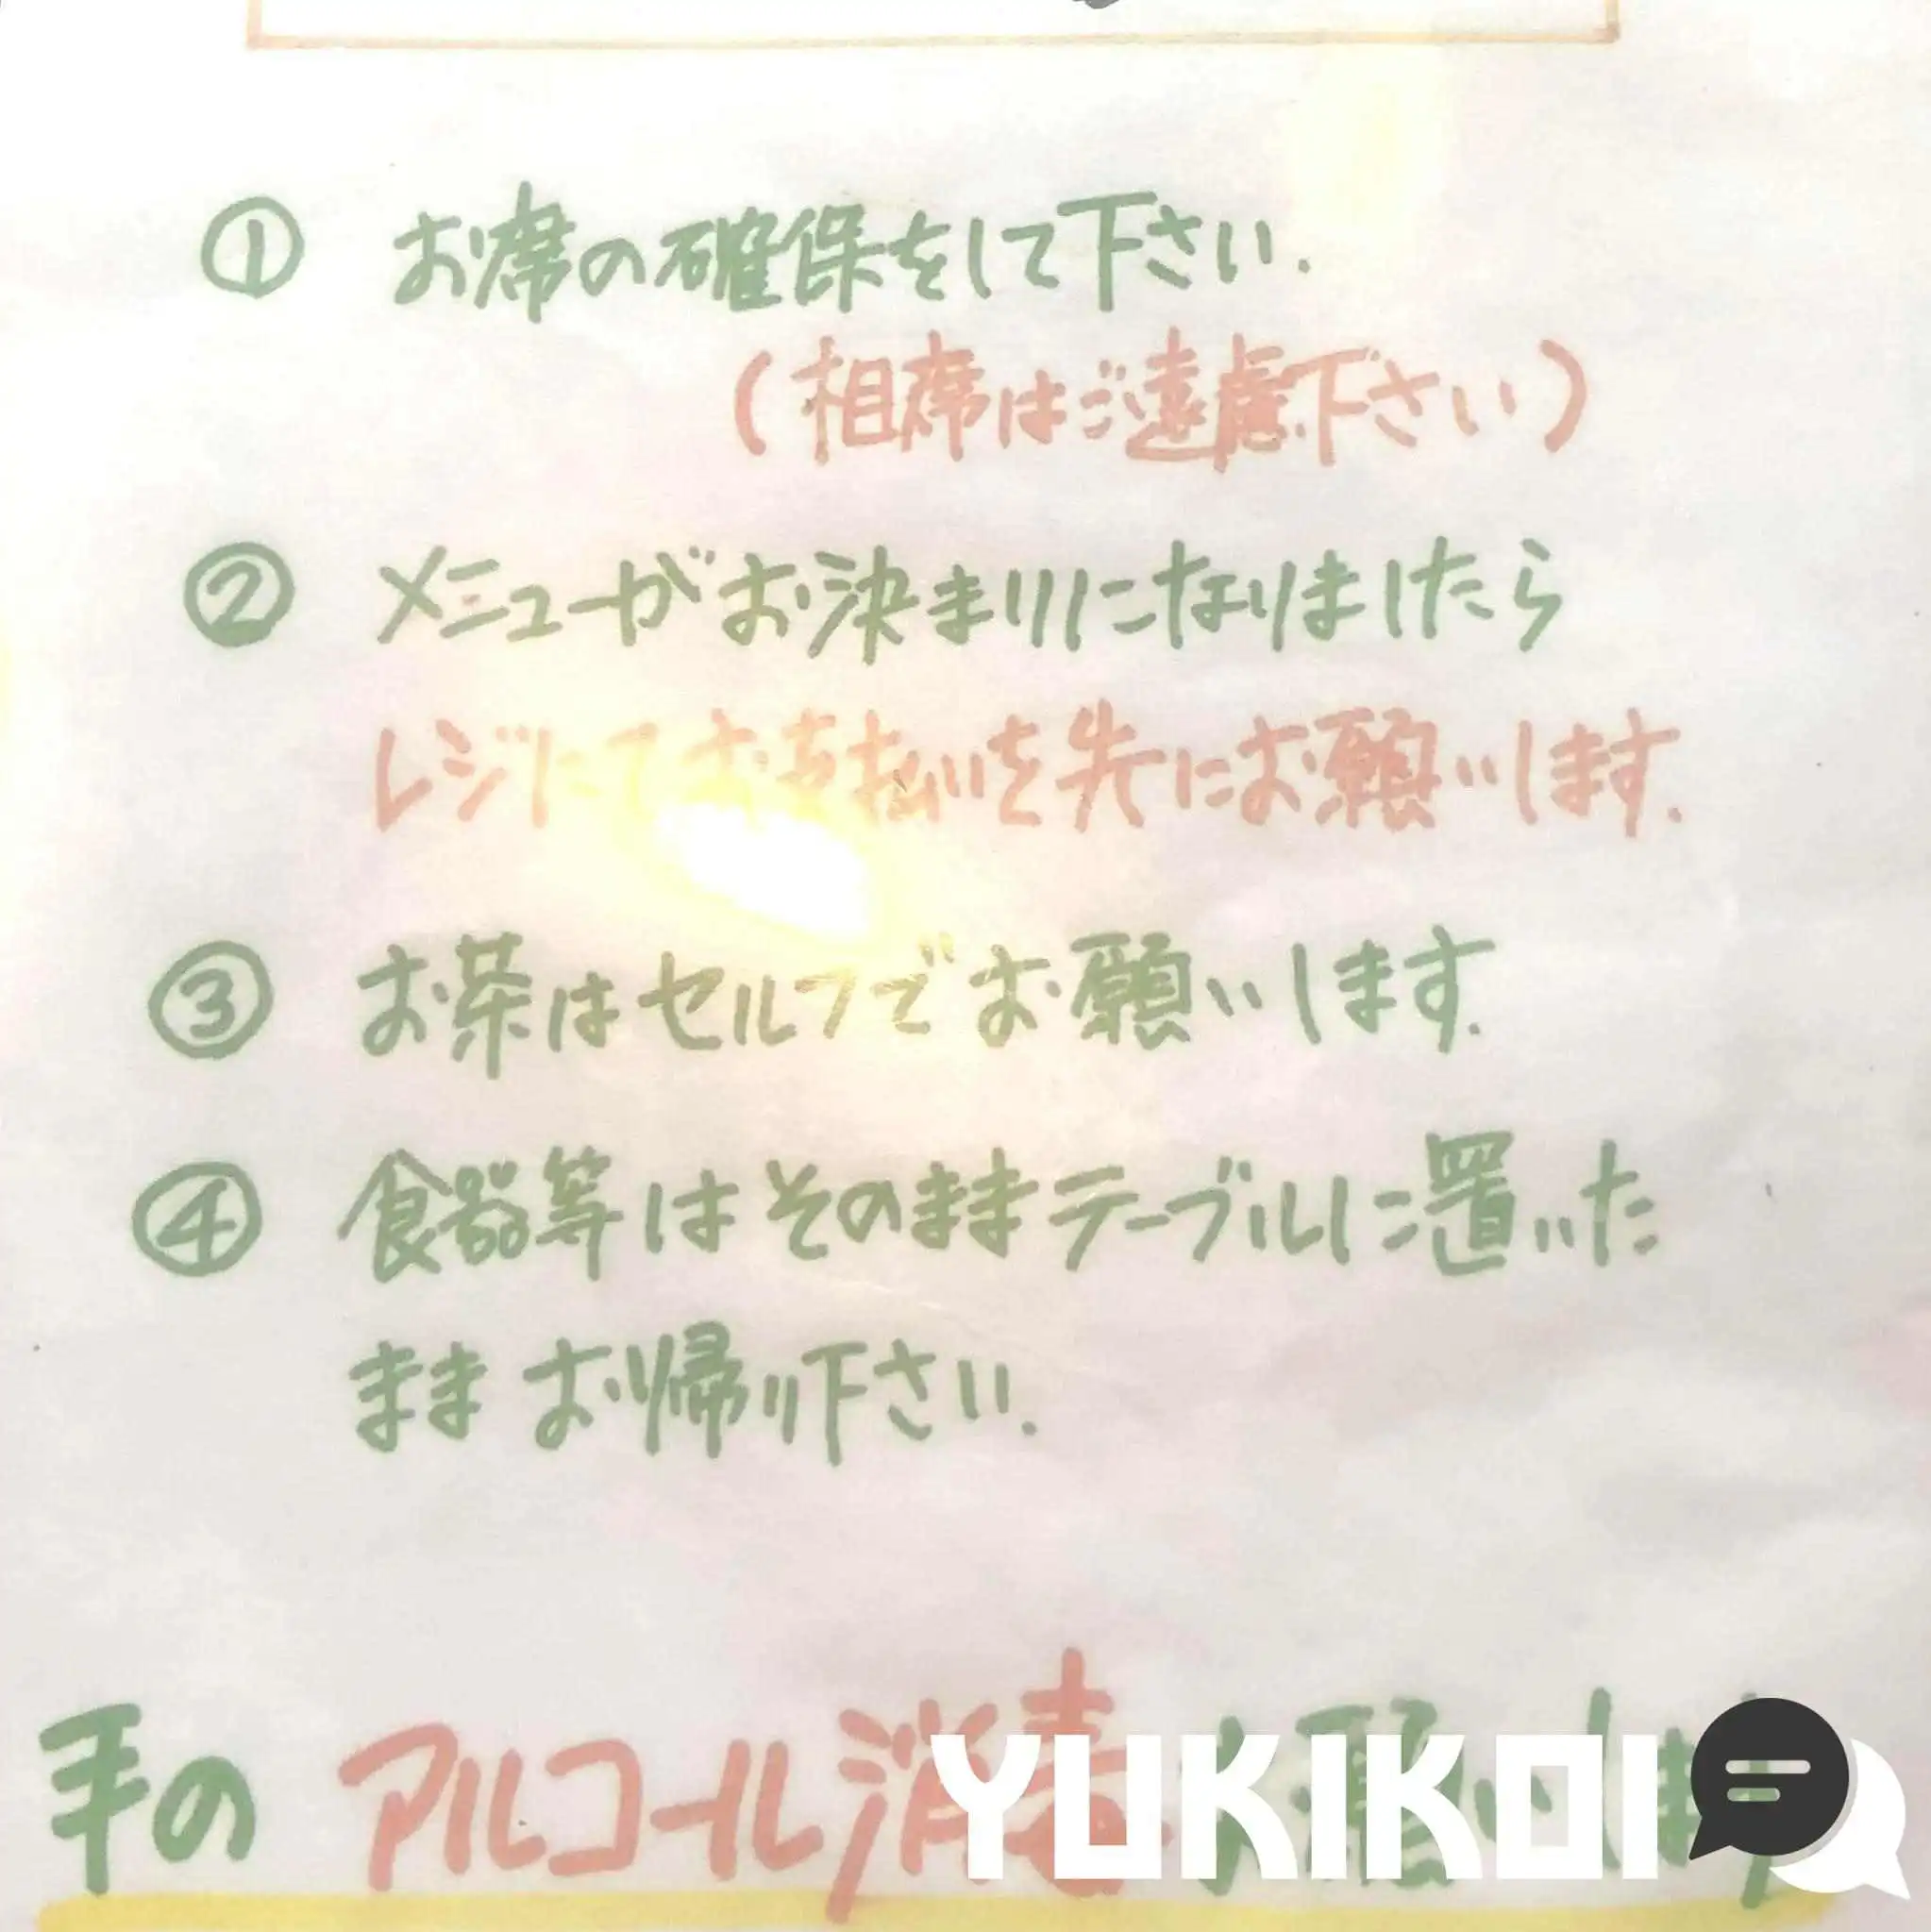 ① お席の確保をして下さい.
(相席はご遠慮下さい)
② メニューがお決まりになりましたら
レジにてお支払いを先にお願いします.
③ お茶はセルフでお願いします.
④ 食器等はそのままテーブルに置いた
まま お帰り下さい.
手の アルコール消毒お願いします
YUKIKOI